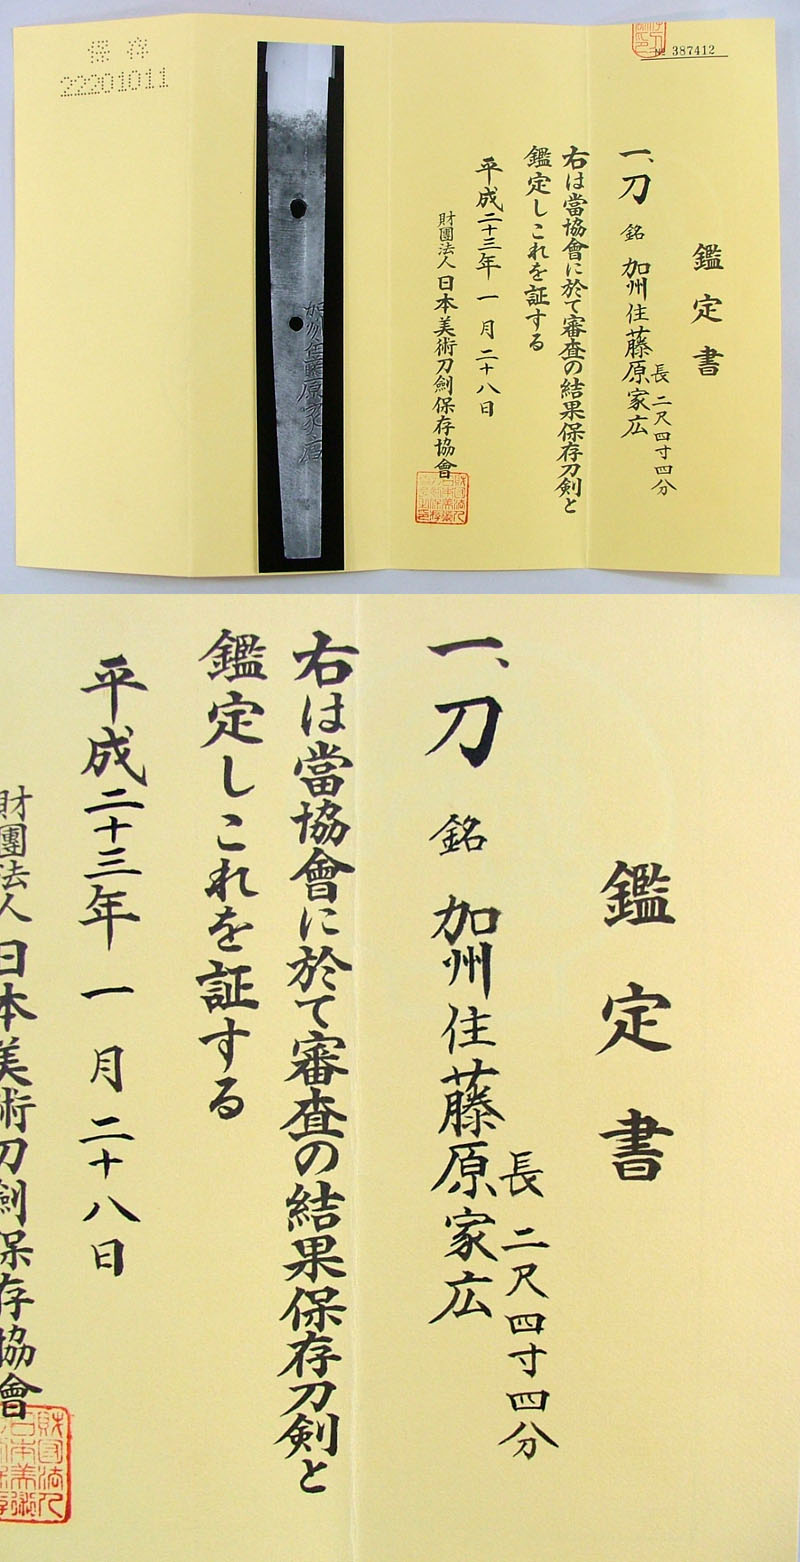 № 387412
鑑定書
一、刀 銘 加州住藤原家広
長二尺四寸四分
右は當協會に於て審査の結果保存刀剣と
鑑定しこれを証する
平成二十三年一月二十八日
財團法人日本美術刀剣保存協會
加州住藤原家広
保存
22201011
鑑定書
長二尺四寸四分
一、刀 銘 加州住藤原家広
右は當協會に於て審査の結果保存刀剣と
鑑定しこれを証する
平成二十三年一月二十八日
財團法人日本美術刀剣保存協會